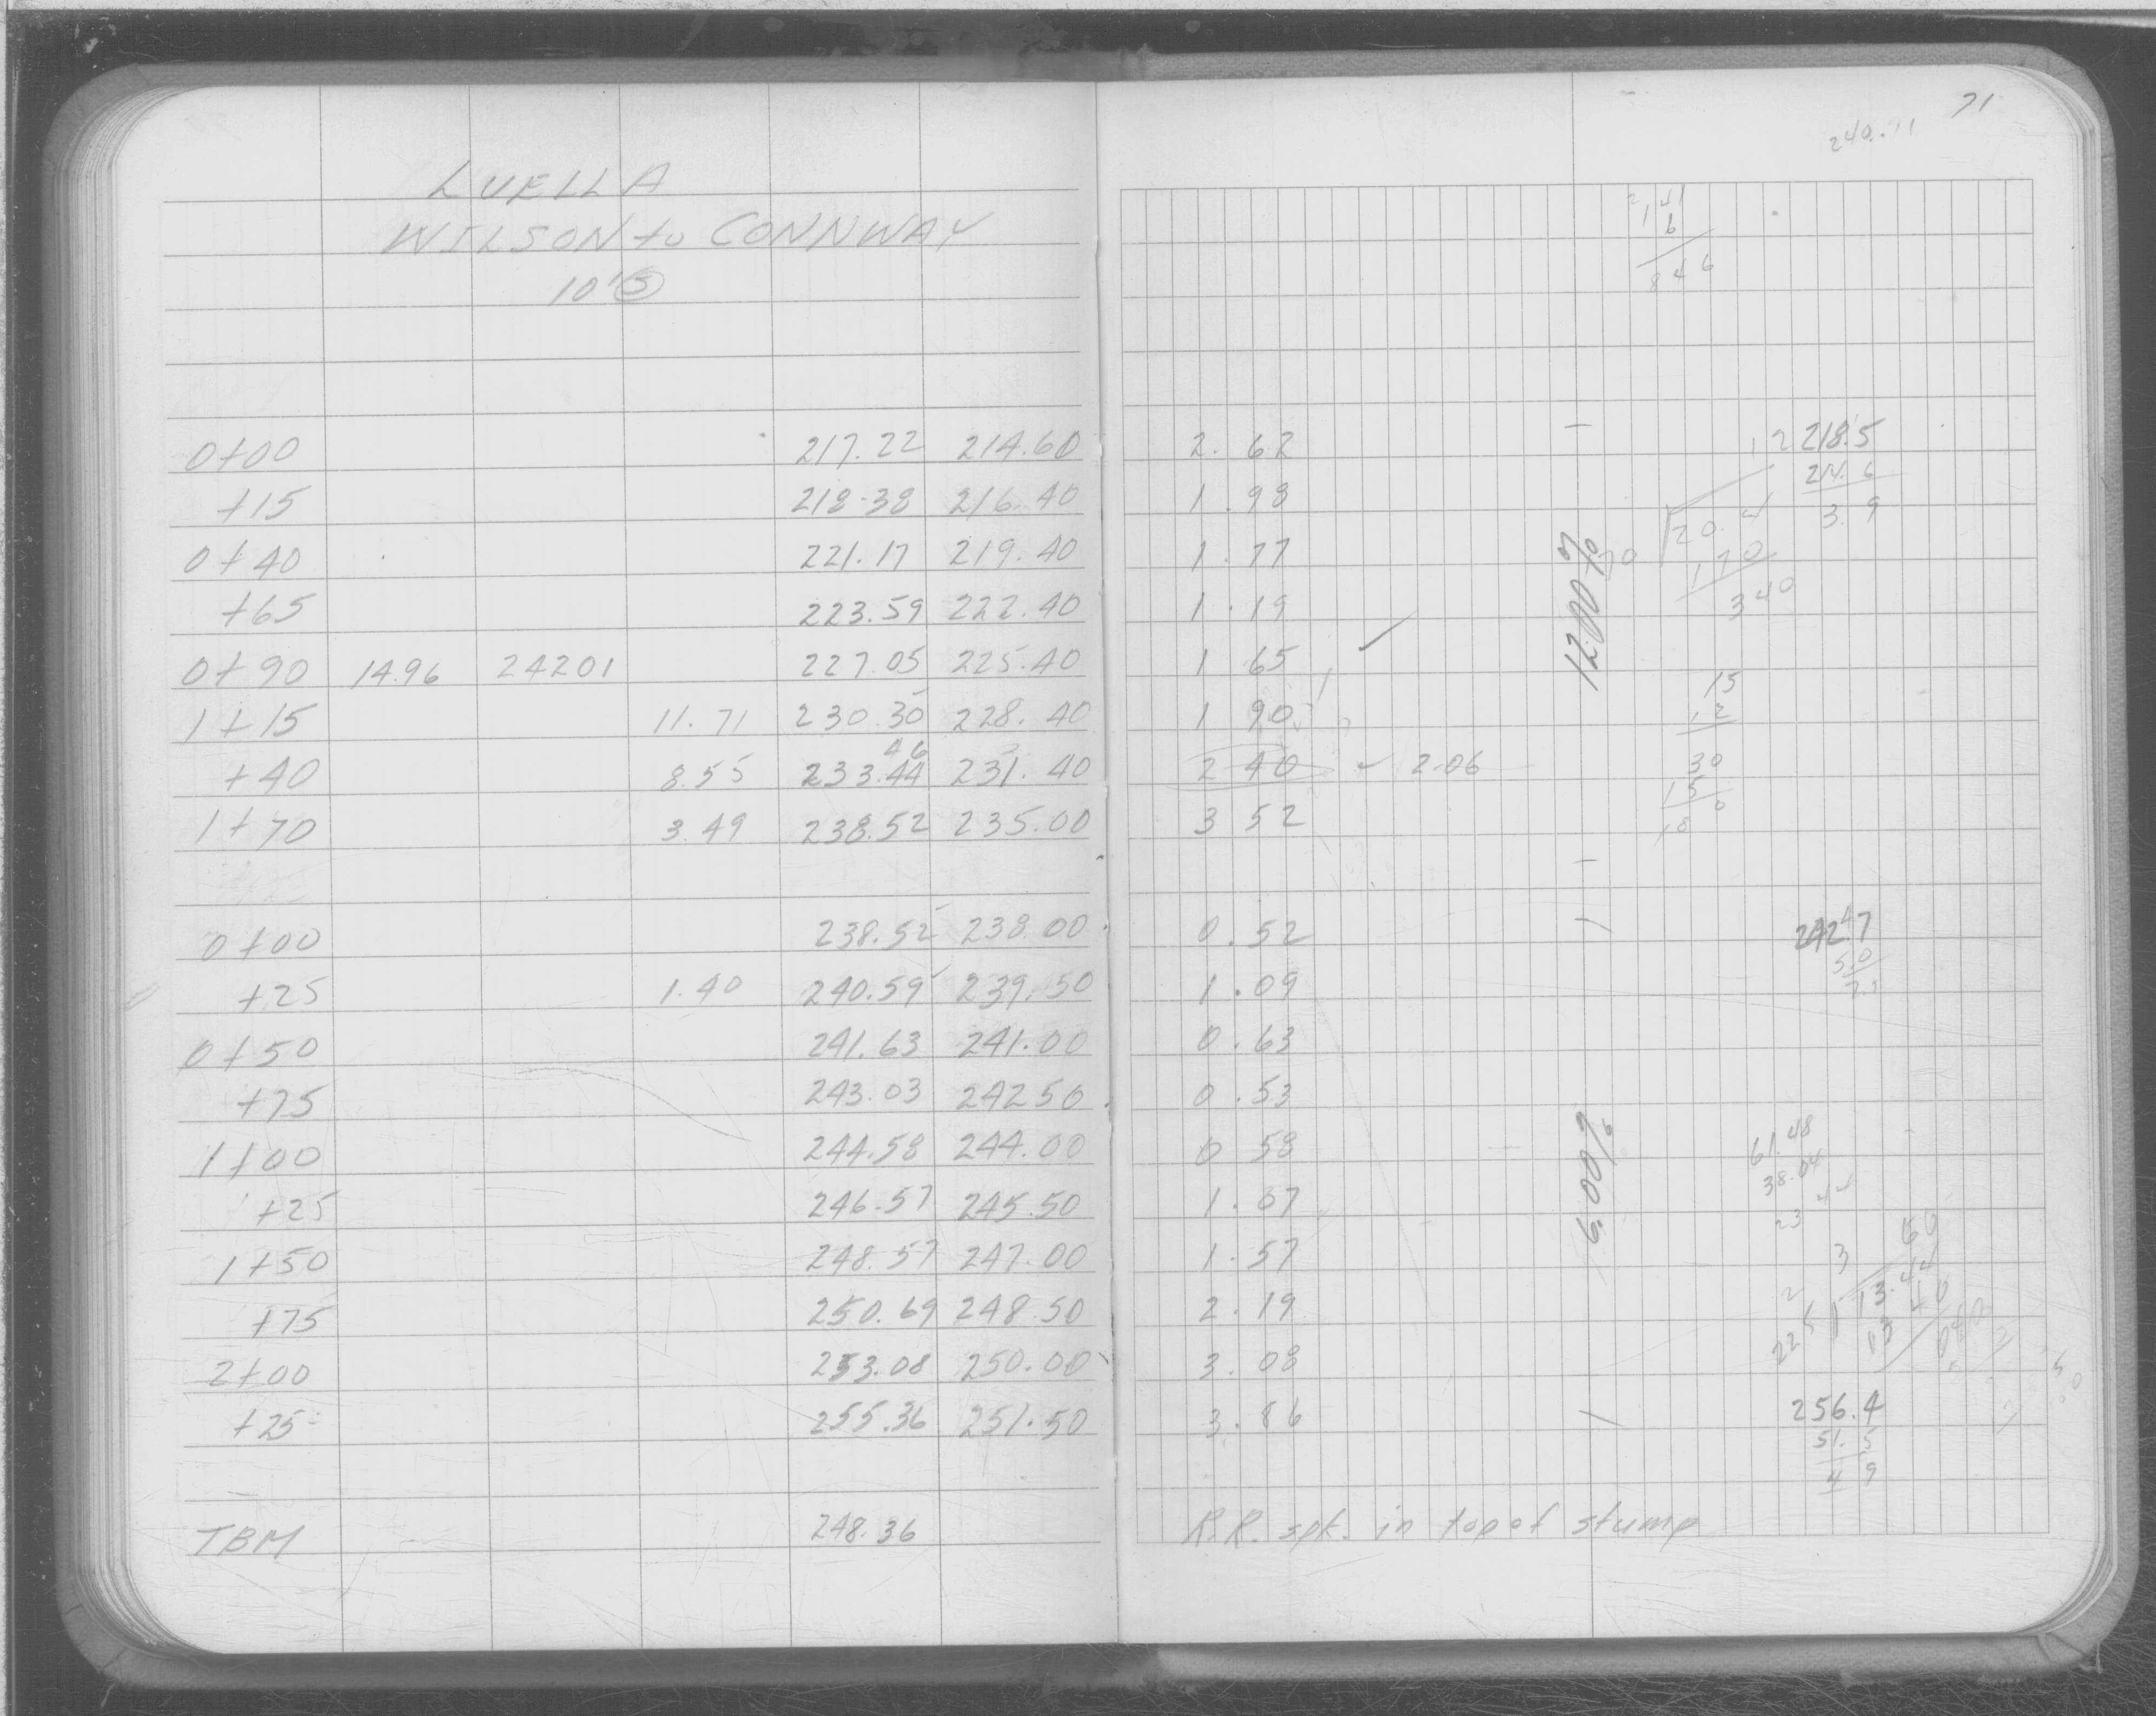 71
240.71
LUELLA
WILSON to CONNWAY
10' S
0+00 217.22 214.60 2.62 218.5
+15 218.38 216.40 1.98 214.6
3.9
0+40 221.17 219.40 1.77
+65 223.59 222.40 1.19
12.00%
0+90 14.96 242.01 227.05 225.40 1 65
1+15 11.71 230.30 228.40 1 90
+40 8.55 233.44 46 231.40 2 40 2.06
1+70 3.49 238.52 235.00 3 52
20.4
170
340
15
12
30
15
18 0
0+00 238.52 238.00 0.52
+25 1.40 240.59 239.50 1.09
0+50 241.63 241.00 0.63
+75 243.03 242 50 0.53
1+00 244.58 244.00 0 58
+25 246.57 245.50 1.07
6.00%
1+50 248.57 247.00 1.57
+75 250.69 248.50 2.19
2+00 253.08 250.00 3.08
+25 255.36 251.50 3.86
61.48
38.04
23 44
256.4
51.5
4 9
TBM 248.36 R.R. spk. in top of stump